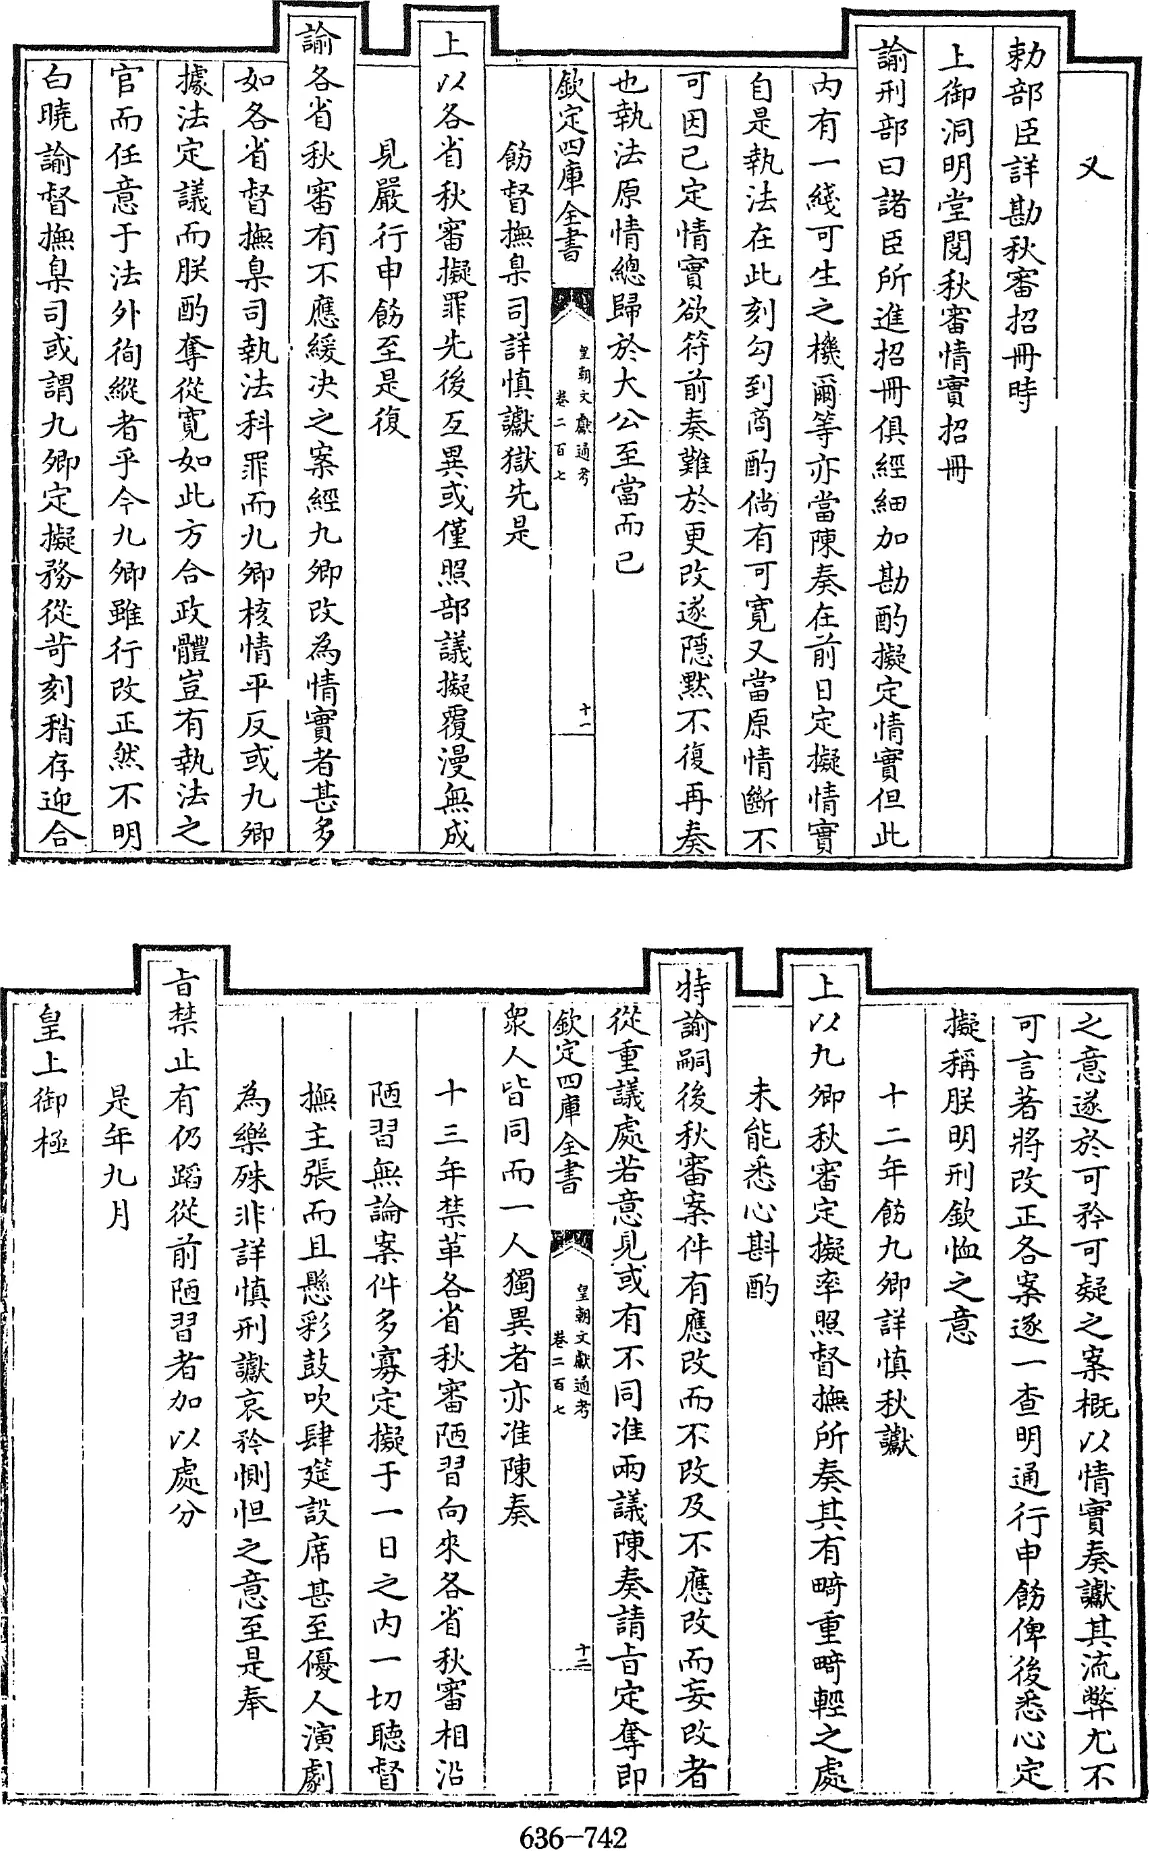 又
勅部臣詳勘秋審招冊時
上御洞明堂閱秋審情實招冊
諭刑部曰諸臣所進招冊俱經細加勘酌擬定情實但此
内有一綫可生之機爾等亦當陳奏在前日定擬情實
自是執法在此刻勾到商酌倘有可寛又當原情斷不
可因已定情實欲符前奏難於更改遂隠黙不復再奏
也執法原情總歸於大公至當而已
欽定四庫全書
皇朝文獻通考
卷二百七
十一
飭督撫臬司詳慎讞獄先是
上以各省秋審擬罪先後互異或僅照部議擬覆漫無成
見嚴行申飭至是復
諭各省秋審有不應緩决之案經九卿改為情實者甚多
如各省督撫臬司執法科罪而九卿核情平反或九卿
據法定議而朕酌奪從寛如此方合政體豈有執法之
官而任意于法外徇縱者乎今九卿雖行改正然不明
白曉諭督撫臬司或謂九卿定擬務從苛刻稍存迎合
之意遂於可矜可疑之案概以情實奏讞其流弊尤不
可言著將改正各案逐一查明通行申飭俾後悉心定
擬稱朕明刑欽恤之意
十二年飭九卿詳慎秋讞
上以九卿秋審定擬率照督撫所奏其有畸重畸輕之處
未能悉心斟酌
特諭嗣後秋審案件有應改而不改及不應改而妄改者
從重議處若意見或有不同准兩議陳奏請旨定奪即
欽定四庫全書
皇朝文獻通考
卷二百七
十二
衆人皆同而一人獨異者亦准陳奏
十三年禁革各省秋審陋習向來各省秋審相沿
陋習無論案件多寡定擬于一日之内一切聴督
撫主張而且懸彩鼓吹肆筵設席甚至優人演劇
為樂殊非詳慎刑讞哀矜惻怛之意至是奉
旨禁止有仍蹈從前陋習者加以處分
是年九月
皇上御極
636-742